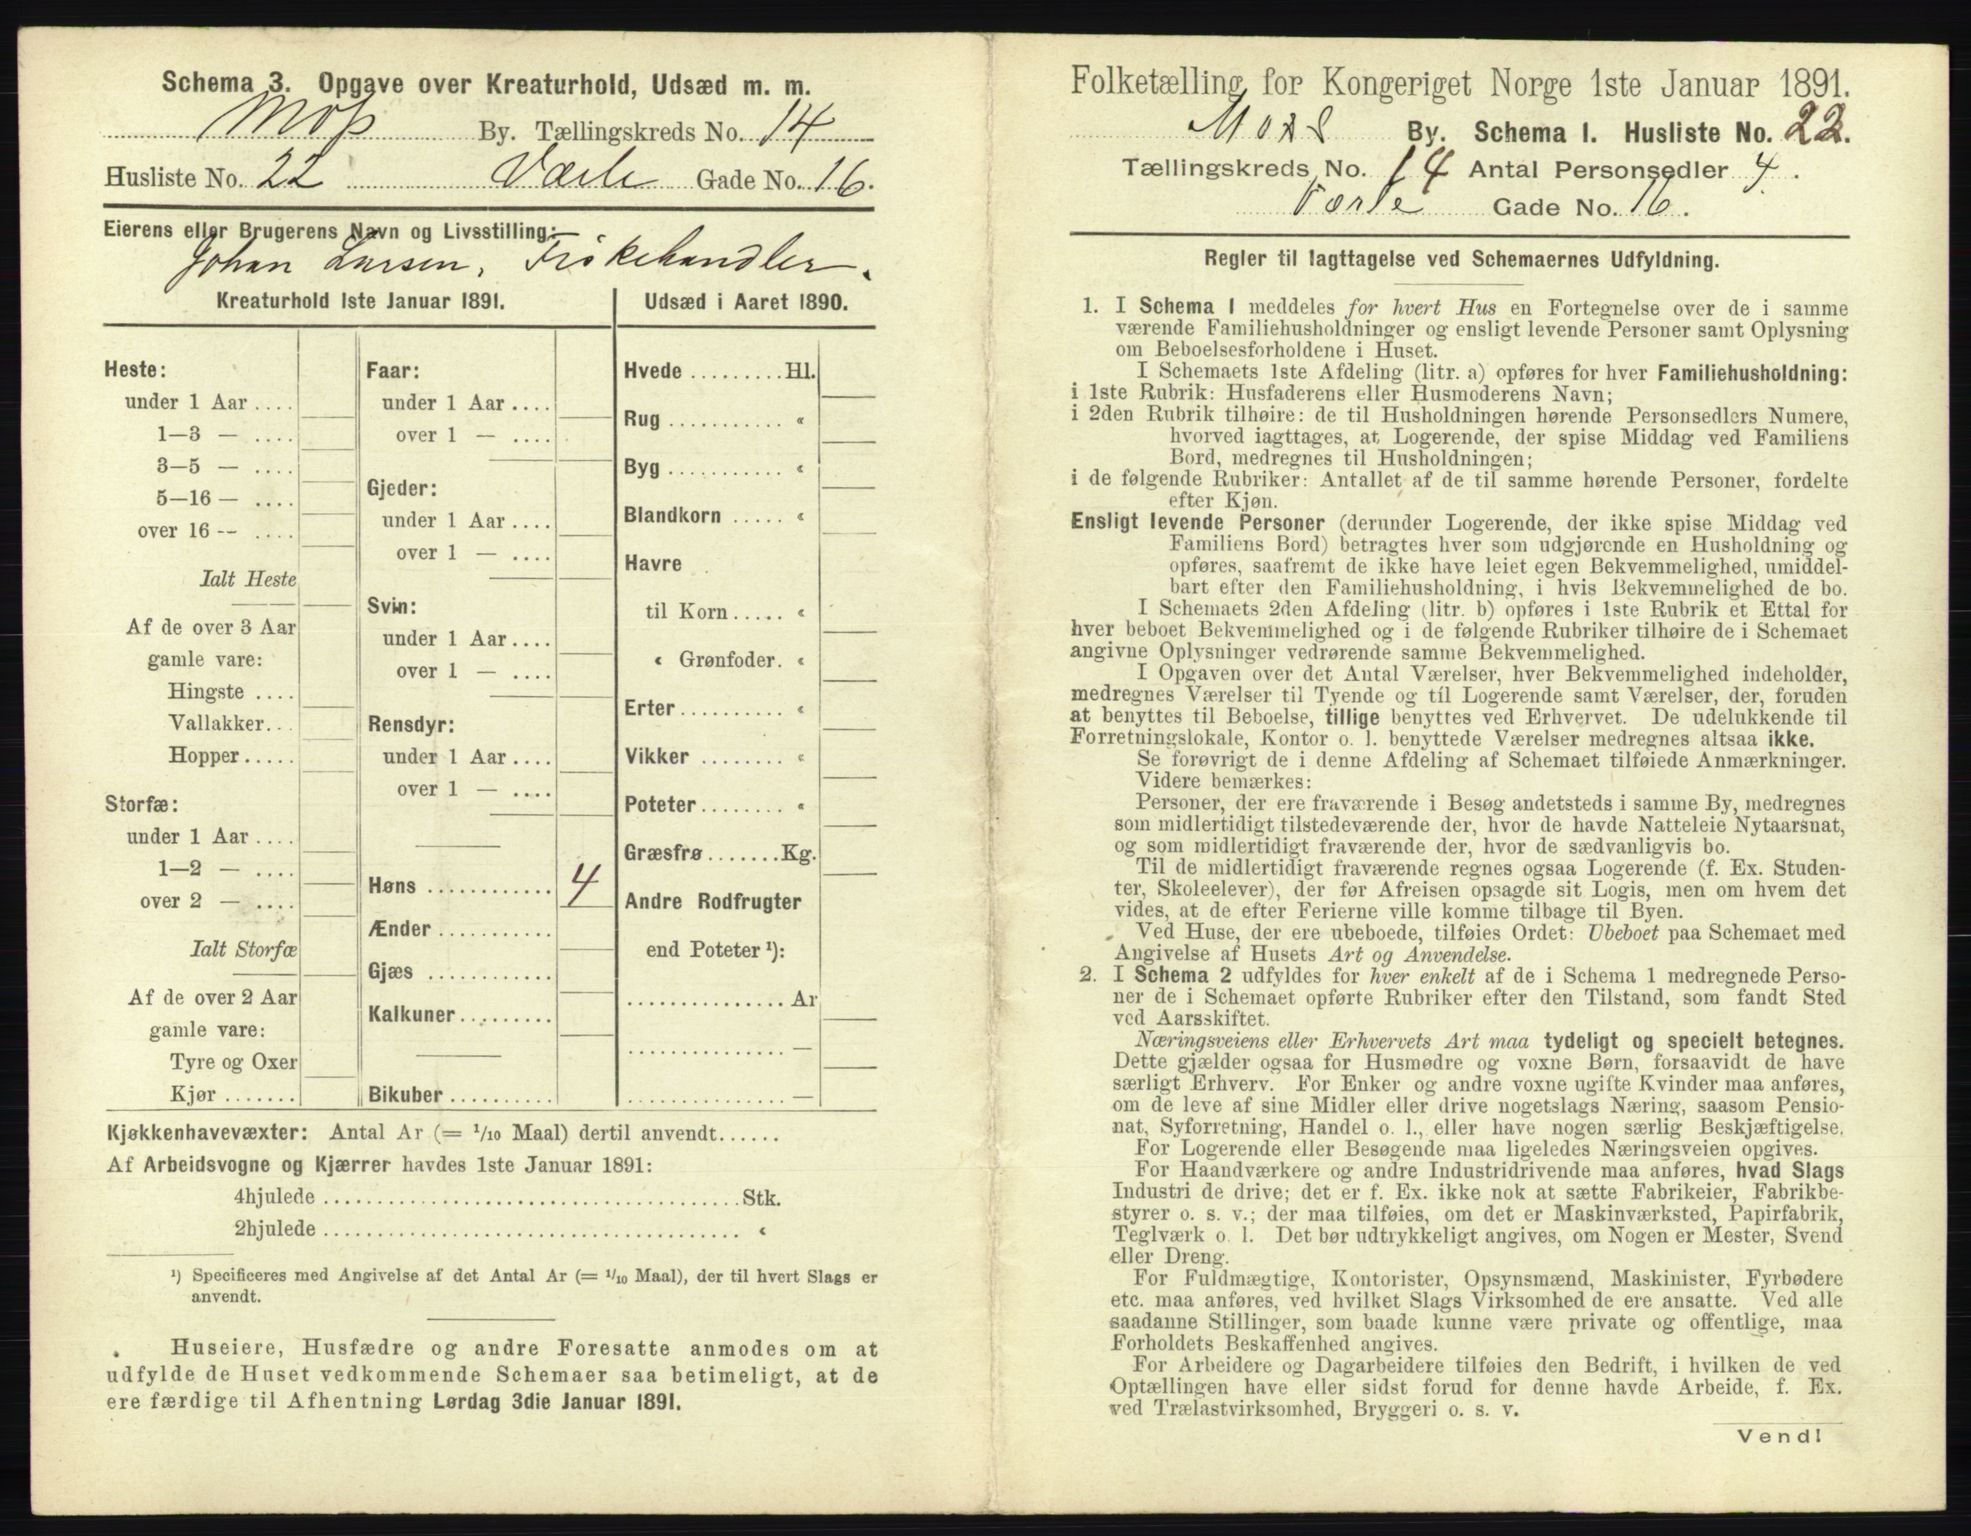 Schema 3. Opgave over Kreaturhold, Udsæd m. m.
Moss By. Tællingskreds No. 14
Husliste No. 22 Værle Gade No. 16.
Eierens eller Brugerens Navn og Livsstilling:
Johan Larsen, Fiskehandler.
Kreaturhold 1ste Januar 1891.
Heste:
under 1 Aar ....
1—3 — ....
3—5 — ....
5—16 — ....
over 16 -- ....
Ialt Heste
Af de over 3 Aar
gamle vare:
Hingste ....
Vallakker...
Hopper.....
Storfæ:
under 1 Aar ....
1—2 — ....
over 2 — ....
Ialt Storfæ
Af de over 2 Aar
gamle vare:
Tyre og Oxer
Kjør .......
Faar:
under 1 Aar ....
over 1 — ....
Gjeder:
under 1 Aar ....
over 1 — ....
Svin:
under 1 Aar ....
over 1 — ....
Rensdyr:
under 1 Aar ....
over 1 — ....
Høns ............ 4
Ænder ...........
Gjæs ............
Kalkuner.........
Bikuber ..........
Udsæd i Aaret 1890.
Hvede .........Hl.
Rug ........... «
Byg ........... «
Blandkorn ..... «
Havre
til Korn..... «
« Grønfoder. «
Erter.......... «
Vikker ........ «
Poteter........ «
Græsfrø.......Kg.
Andre Rodfrugter
end Poteter ¹):
............... Ar
............... —
............... —
Kjøkkenhavevæxter: Antal Ar (= 1/10 Maal) dertil anvendt......
Af Arbeidsvogne og Kjærrer havdes 1ste Januar 1891:
4hjulede ........................................Stk.
2hjulede ........................................ «
¹) Specificeres med Angivelse af det Antal Ar (= 1/10 Maal), der til hvert Slags er
anvendt.
Huseiere, Husfædre og andre Foresatte anmodes om at
udfylde de Huset vedkommende Schemaer saa betimeligt, at de
ere færdige til Afhentning Lørdag 3die Januar 1891.
Folketælling for Kongeriget Norge 1ste Januar 1891.
Moss By. Schema I. Husliste No. 22.
Tællingskreds No. 14 Antal Personsedler 4.
Værle Gade No. 16.
Regler til Iagttagelse ved Schemaernes Udfyldning.
1. I Schema 1 meddeles for hvert Hus en Fortegnelse over de i samme
værende Familiehusholdninger og ensligt levende Personer samt Oplysning
om Beboelsesforholdene i Huset.
I Schemaets 1ste Afdeling (litr. a) opføres for hver Familiehusholdning:
i 1ste Rubrik: Husfaderens eller Husmoderens Navn;
i 2den Rubrik tilhøire: de til Husholdningen hørende Personsedlers Numere,
hvorved iagttages, at Logerende, der spise Middag ved Familiens
Bord, medregnes til Husholdningen;
i de følgende Rubriker: Antallet af de til samme hørende Personer, fordelte
efter Kjøn.
Ensligt levende Personer (derunder Logerende, der ikke spise Middag ved
Familiens Bord) betragtes hver som udgjørende en Husholdning og
opføres, saafremt de ikke have leiet egen Bekvemmelighed, umiddel-
bart efter den Familiehusholdning, i hvis Bekvemmelighed de bo.
I Schemaets 2den Afdeling (litr. b) opføres i 1ste Rubrik et Ettal for
hver beboet Bekvemmelighed og i de følgende Rubriker tilhøire de i Schemaet
angivne Oplysninger vedrørende samme Bekvemmelighed.
I Opgaven over det Antal Værelser, hver Bekvemmelighed indeholder,
medregnes Værelser til Tyende og til Logerende samt Værelser, der, foruden
at benyttes til Beboelse, tillige benyttes ved Erhvervet. De udelukkende til
Forretningslokale, Kontor o. l. benyttede Værelser medregnes altsaa ikke.
Se forøvrigt de i denne Afdeling af Schemaet tilføiede Anmærkninger.
Videre bemærkes:
Personer, der ere fraværende i Besøg andetsteds i samme By, medregnes
som midlertidigt tilstedeværende der, hvor de havde Natteleie Nytaarsnat,
og som midlertidigt fraværende der, hvor de sædvanligvis bo.
Til de midlertidigt fraværende regnes ogsaa Logerende (f. Ex. Studen-
ter, Skoleelever), der før Afreisen opsagde sit Logis, men om hvem det
vides, at de efter Ferierne ville komme tilbage til Byen.
Ved Huse, der ere ubeboede, tilføies Ordet: Ubeboet paa Schemaet med
Angivelse af Husets Art og Anvendelse.
2. I Schema 2 udfyldes for hver enkelt af de i Schema 1 medregnede Perso-
ner de i Schemaet opførte Rubriker efter den Tilstand, som fandt Sted
ved Aarsskiftet.
Næringsveiens eller Erhvervets Art maa tydeligt og specielt betegnes.
Dette gjælder ogsaa for Husmødre og voxne Børn, forsaavidt de have
særligt Erhverv. For Enker og andre voxne ugifte Kvinder maa anføres,
om de leve af sine Midler eller drive nogetslags Næring, saasom Pensio-
nat, Syforretning, Handel o. l., eller have nogen særlig Beskjæftigelse.
For Logerende eller Besøgende maa ligeledes Næringsveien opgives.
For Haandværkere og andre Industridrivende maa anføres, hvad Slags
Industri de drive; det er f. Ex. ikke nok at sætte Fabrikeier, Fabrikbe-
styrer o. s. v.; der maa tilføies, om det er Maskinværksted, Papirfabrik,
Teglværk o. l. Det bør udtrykkeligt angives, om Nogen er Mester, Svend
eller Dreng.
For Fuldmægtige, Kontorister, Opsynsmænd, Maskinister, Fyrbødere
etc. maa anføres, ved hvilket Slags Virksomhed de ere ansatte. Ved alle
saadanne Stillinger, som baade kunne være private og offentlige, maa
Forholdets Beskaffenhed angives.
For Arbeidere og Dagarbeidere tilføies den Bedrift, i hvilken de ved
Optællingen have eller sidst forud for denne havde Arbeide, f. Ex.
ved Trælastvirksomhed, Bryggeri o. s. v.
Vend!